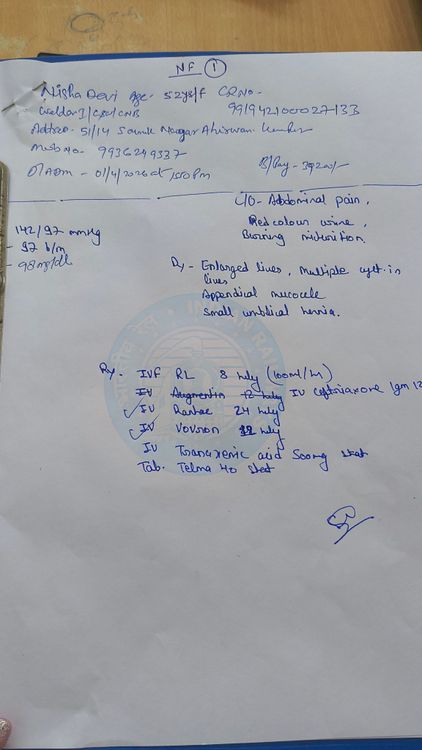 NF ①
Nisha Devi Age- 52yrs/f CRNO-
Welder I/C&W/CNB 9919421000 27133
Address- 51/14 Nagar Ahirwan
Mob No- 9936249337
DOAdm- 01/4/2026 at 150 Pm B/Pay- 39200/-
C/O- Abdominal pain,
Red colour urine,
Burning miturition.
142/97 mmHg
- 97 b/m
- 98 mg/dl
Dx- Enlarged liver, Multiple cyst in
liver
Appendial mucocele
Small umblical hernia.
भारतीय रेल INDIAN RAIL
Rx- IVF RL 8 hrly (100ml/hr)
IV Augmentin 12 hrly IV ceftriaxone 1gm 12
✓ IV Rantac 24 hrly
✓ IV Vovron 12 hrly
IV Tranaxemic acid 500mg stat
Tab. Telma 40 stat